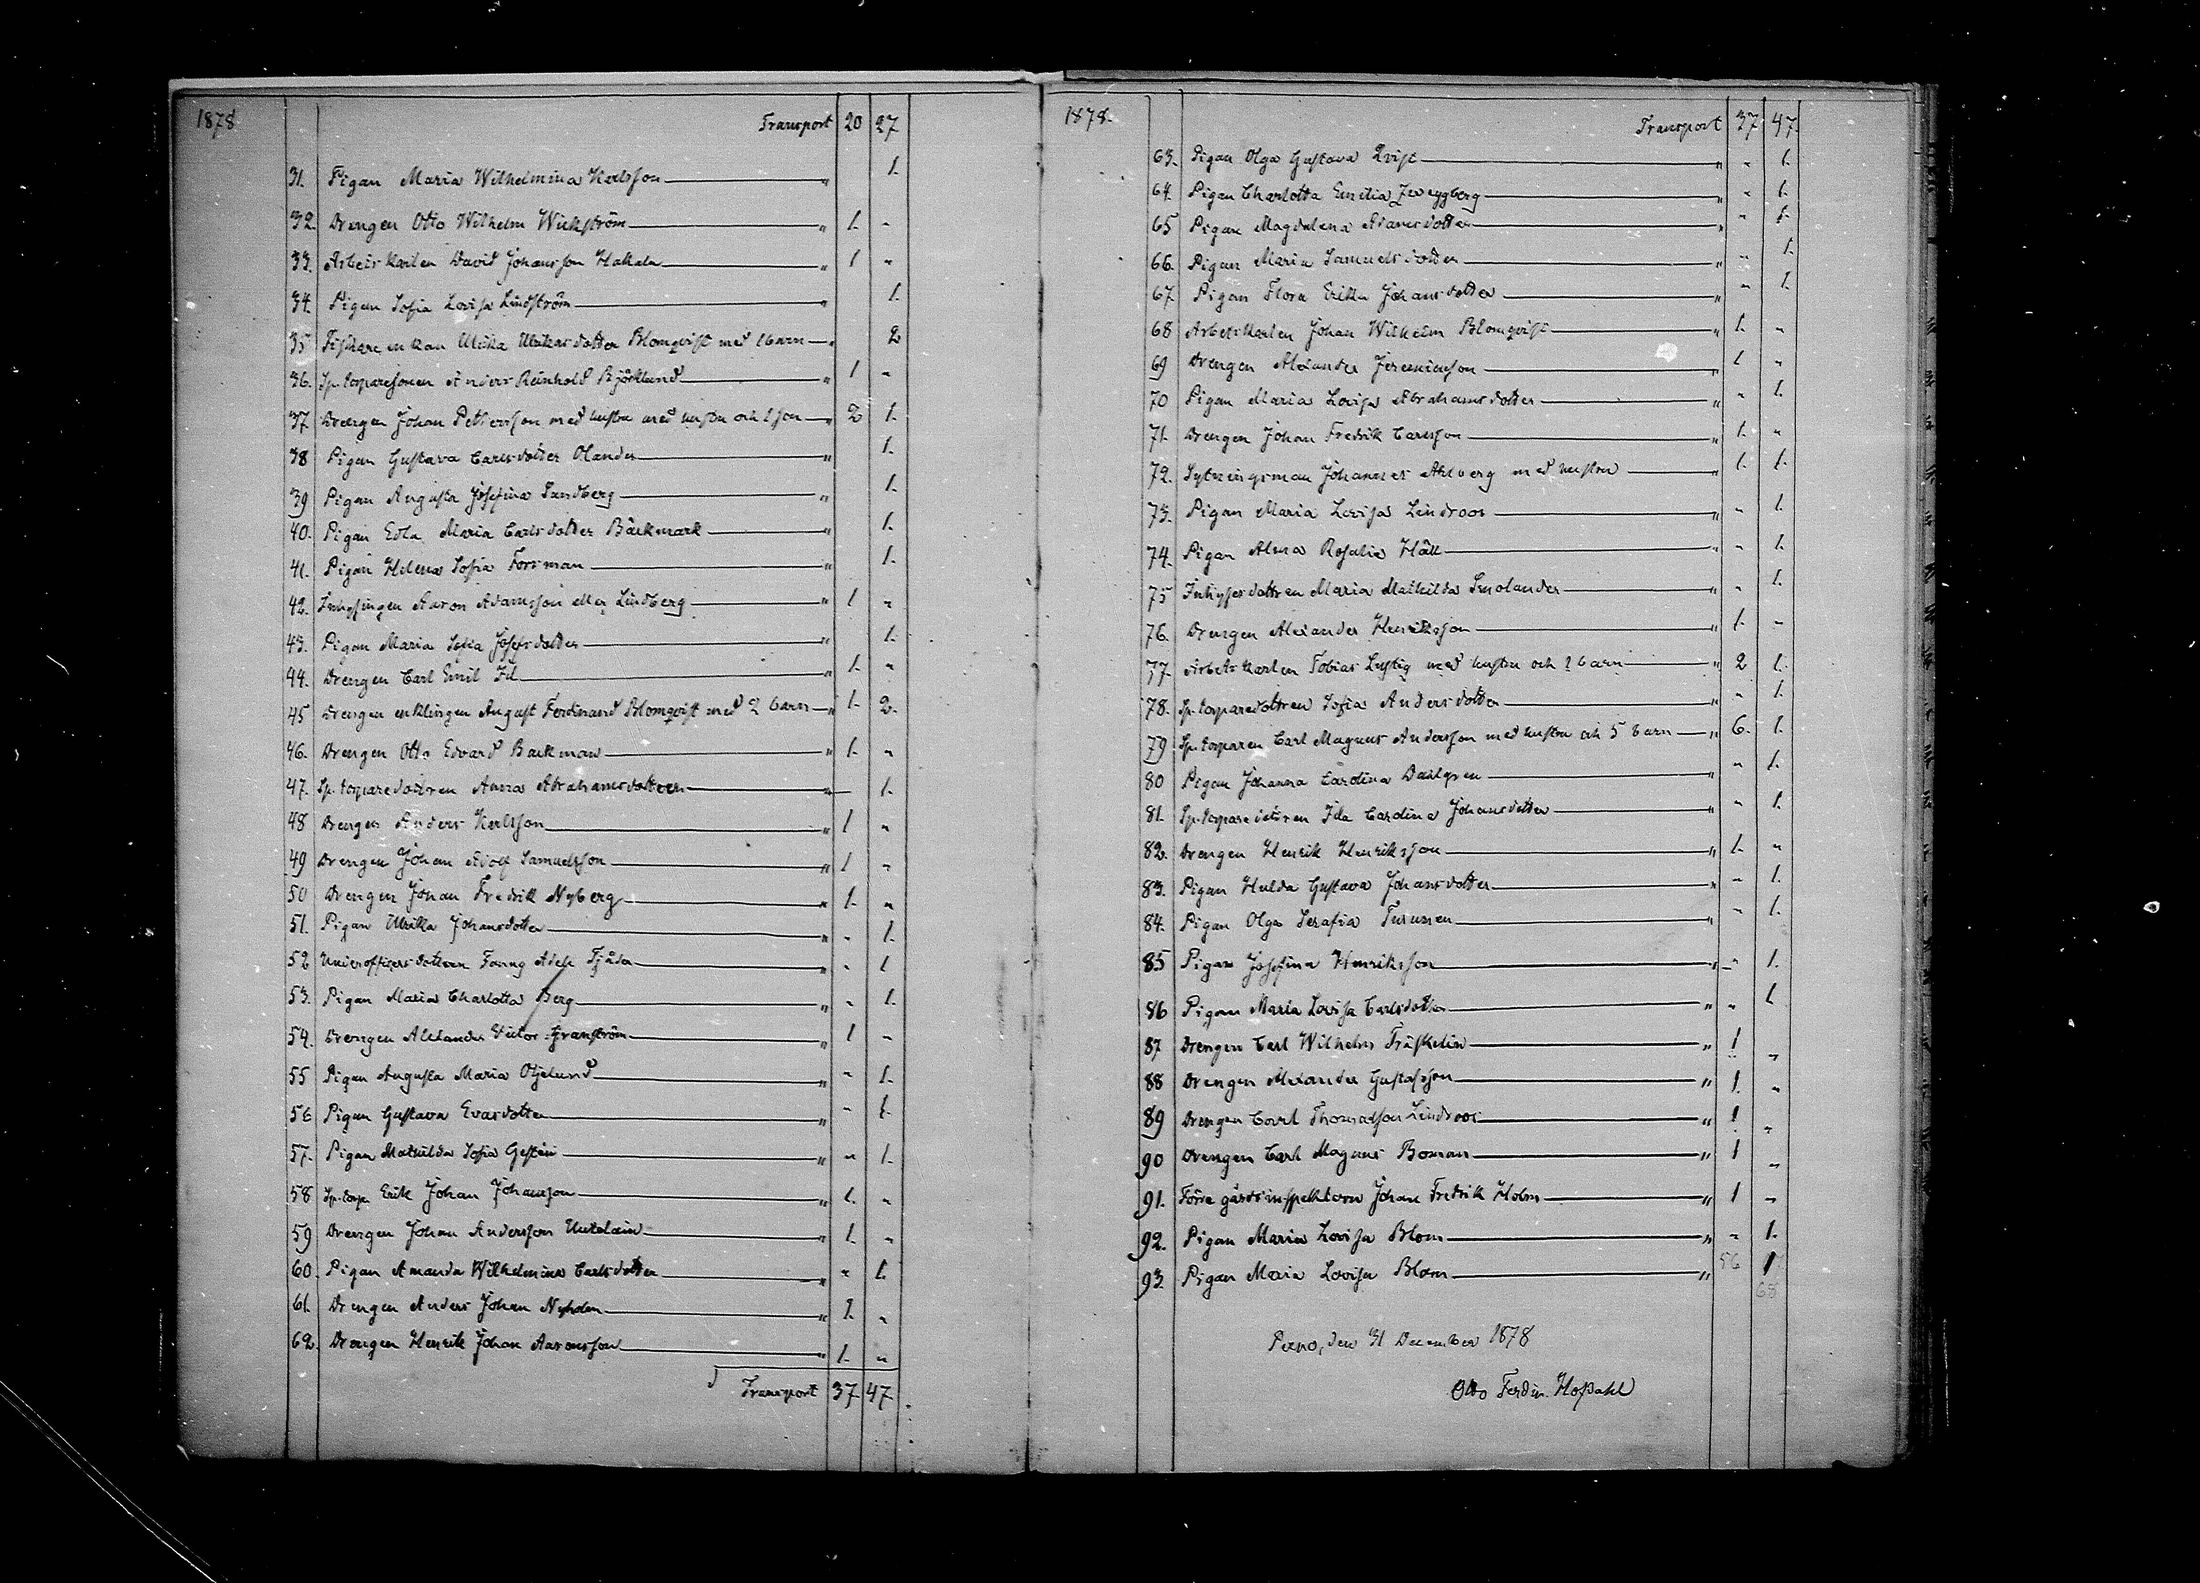 1878
Transport 20 27
31. Pigan Maria Wilhelmina Karlsson " 1.
32. Drengen Otto Wilhelm Wickström " 1. "
33. Arbetskarlen David Johansson Hakala " 1 "
34. Pigan Sofia Lovisa Lindström " 1.
35 Fiskare enkan Ulrika Ulrikasdotter Blomqvist med 1 barn " 2
36. Sp. torparesonen Anders Reinhold Björklund " 1 "
37 Drengen Johan Pettersson med hustru med hustru och 1 son " 2 1.
38 Pigan Gustava Carlsdotter Olander " 1.
39 Pigan Augusta Josefina Sundberg " 1.
40. Pigan Edla Maria Carlsdotter Bäckmark " 1.
41. Pigan Helena Sofia Forsman " 1.
42. Inhysingen Aaron Adamsson eller Lindberg " 1 "
43. Pigan Maria Sofia Josefsdotter " 1.
44. Drengen Carl Emil Id " 1. "
45 Drengen enklingen August Ferdinand Blomqvist med 2 barn " 1. 2.
46. Drengen Otto Edvard Backman " 1. "
47. Sp. torparedottren Anna Abrahamsdotter " 1.
48 Drengen Anders Karlsson " 1 "
49 Drengen Johan Adolf Samuelsson " 1 "
50 Drengen Johan Fredrik Nyberg " 1. "
51. Pigan Ulrika Johansdotter " " 1.
52 Underofficersdottren Fanny Adele Tjäder " " 1
53. Pigan Maria Charlotta Berg " " 1.
54. Drengen Alexander Victor Granström " 1 "
55 Pigan Augusta Maria Öjelund " " 1.
56 Pigan Gustava Evasdotter " " 1.
57. Pigan Mathilda Sofia Gestén " " 1.
58 Sp. torp. Erik Johan Johansson " 1. "
59 Drengen Johan Andersson " 1. "
60. Pigan Amanda Wilhelmina Carlsdotter " " 1.
61. Drengen Anders Johan Nyholm " 1. "
62. Drengen Henrik Johan Aaronsson " 1. "
Transport 37. 47.
1878.
Transport 37. 47.
63. Pigan Olga Gustava Qvist " " 1.
64. Pigan Charlotta Emilia Zweygberg " " 1.
65 Pigan Magdalena Adamsdotter " " 1.
66. Pigan Maria Samuelsdotter " " 1.
67. Pigan Flora Erika Johansdotter " " 1.
68 Arbetskarlen Johan Wilhelm Blomqvist " 1. "
69 Drengen Alexander Jeremiasson " 1 "
70 Pigan Maria Lovisa Abrahamsdotter " " 1.
71. Drengen Johan Fredrik Carlsson " 1. "
72. Sytningsman Johannes Ahlberg med hustru " 1. 1.
73. Pigan Maria Lovisa Lindroos " " 1.
74. Pigan Alma Rosalia Häll " " 1.
75 Inhysesdottren Maria Mathilda Smolander " " 1.
76. Drengen Alexander Henriksson " 1. "
77. Arbetskarlen Tobias Lustig med hustru och 1 barn " 2 1.
78. Sp. torparedottren Sofia Andersdotter " " 1.
79 Sp. torparen Carl Magnus Andersson med hustru och 5 barn " 6. 1.
80 Pigan Johanna Carolina Dahlgren " " 1.
81. Sp. torparedottren Ida Carolina Johansdotter " " 1.
82. Drengen Henrik Henriksson " 1. "
83. Pigan Hulda Gustava Johansdotter " " 1.
84. Pigan Olga Serafia Turunen " " 1.
85 Pigan Josefina Henriksson " " 1.
86 Pigan Maria Lovisa Carlsdotter " " 1.
87 Drengen Carl Wilhelm Fräskelin " 1 "
88 Drengen Alexander Gustafsson " 1. "
89 Drengen Carl Thomasson Lindroos " 1 "
90 Drengen Carl Magnus Boman " 1 "
91. Förre gårdsinspektorn Johan Fredrik Holm " 1 "
92. Pigan Maria Lovisa Blom " " 1.
93. Pigan Maria Lovisa Blom " 56 1
68
Perno, den 31 December 1878
Otto Ferdin.